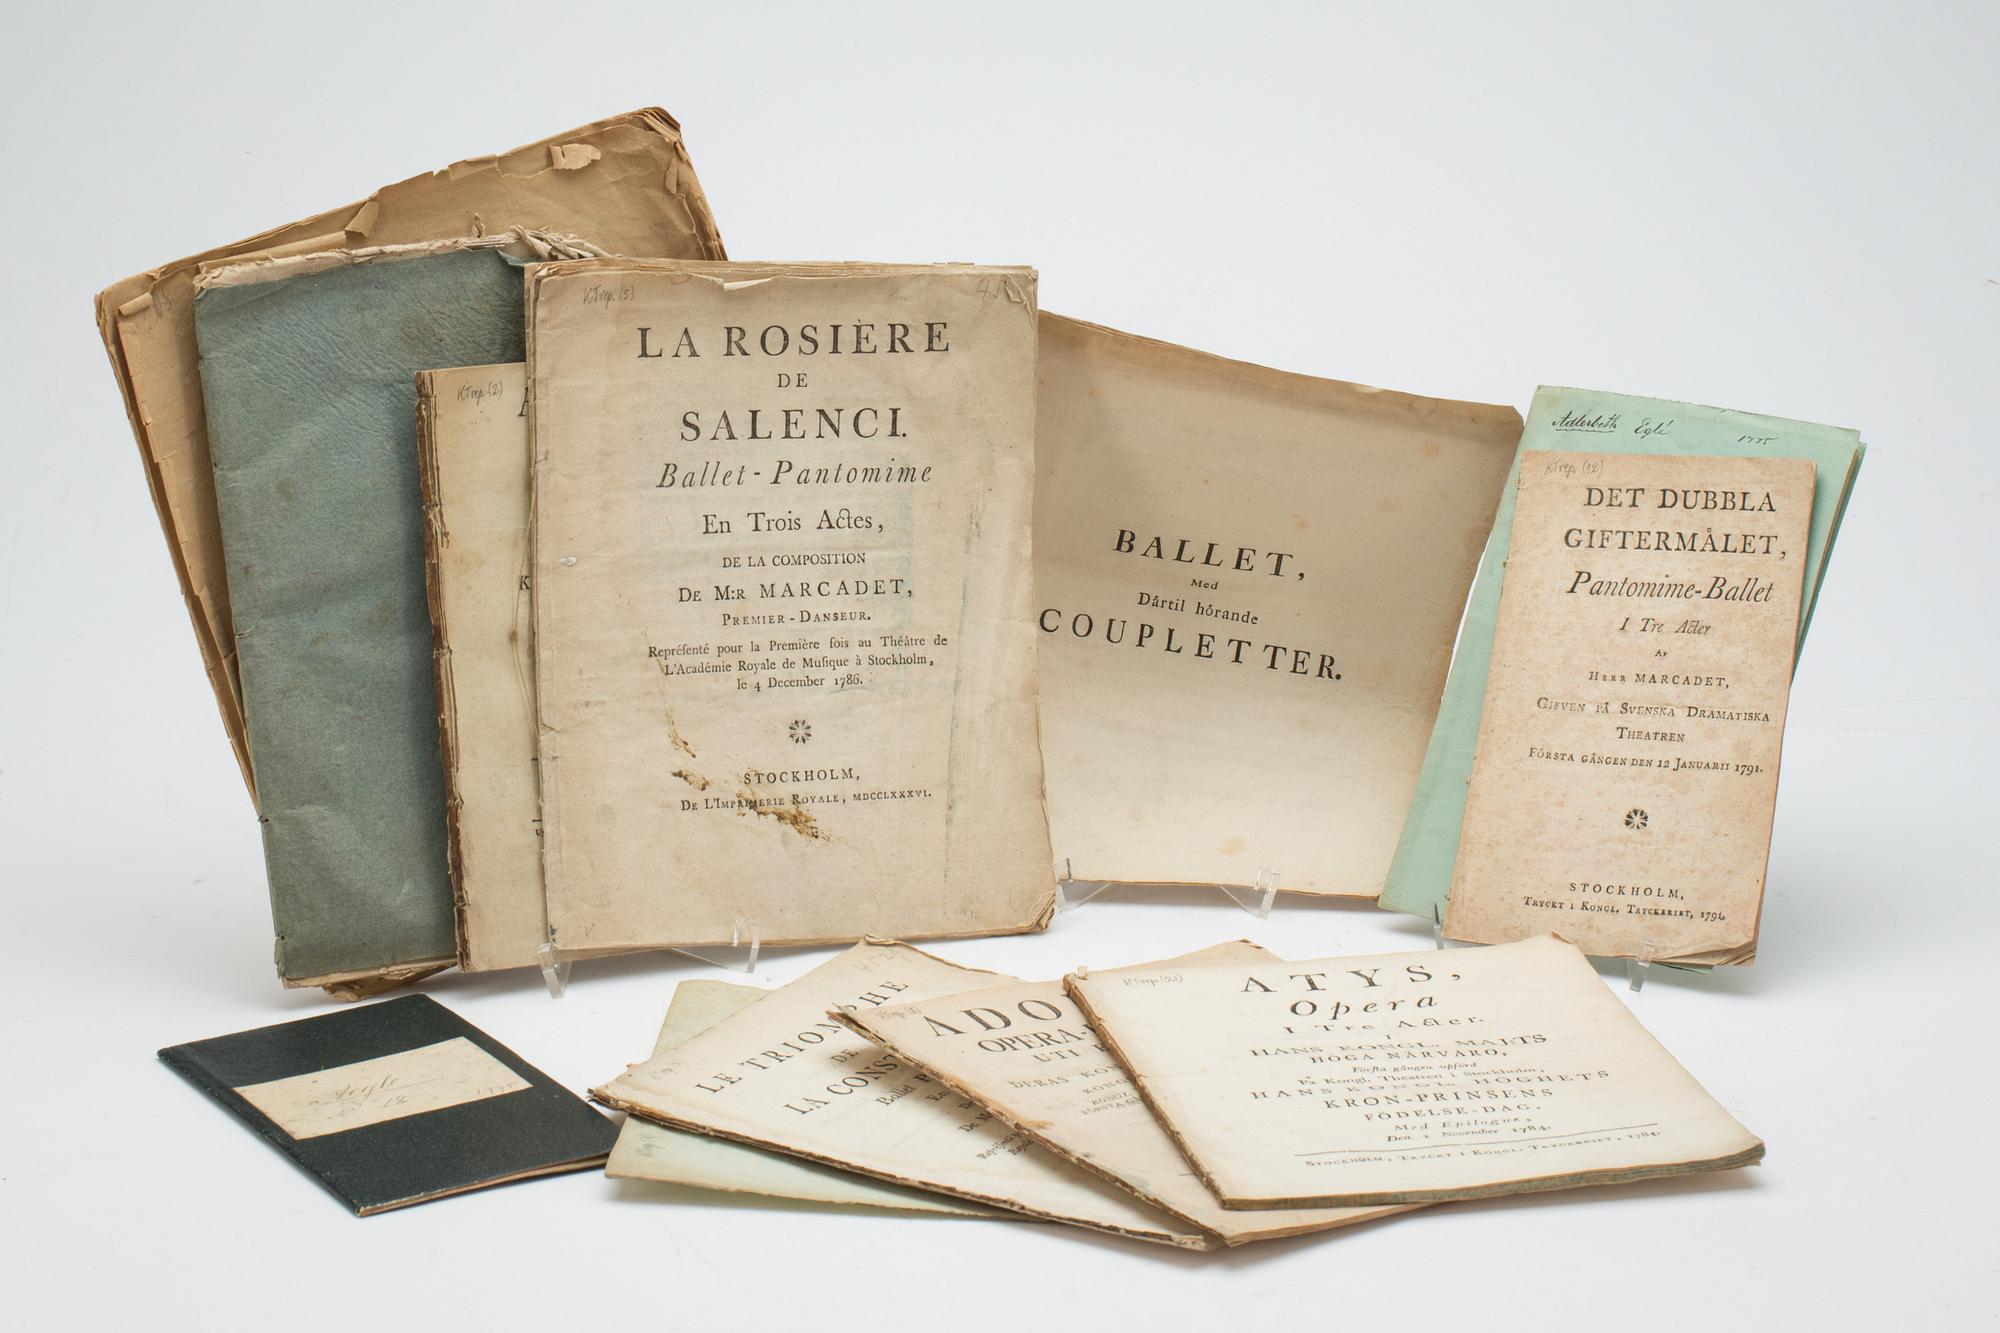 KTrep. (2)
KTrep. (5)
LA ROSIÈRE
DE
SALENCI.
Ballet-Pantomime
En Trois Actes,
DE LA COMPOSITION
DE M:R MARCADET,
PREMIER-DANSEUR.
Repréſenté pour la Première fois au Théâtre de
L'Académie Royale de Muſique à Stockholm,
le 4 December 1786.
STOCKHOLM,
DE L'IMPRIMERIE ROYALE, MDCCLXXXVI.
BALLET,
Med
Dårtil hôrande
COUPLETTER.
Adlerbeth Eglé 1775
KTrep. (12)
DET DUBBLA
GIFTERMÅLET,
Pantomime-Ballet
I Tre Acter
AF
HERR MARCADET,
GIFVEN PÅ SVENSKA DRAMATISKA
THEATREN
FÖRSTA GÅNGEN DEN 12 JANUARII 1791.
STOCKHOLM,
TRYCKT I KONGL. TRYCKERIET, 1791.
Aegle
1775
LE TRIOMPHE
DE
LA CONST
Ballet
ADO
OPERA-
UTI
DERAS KO
KONG
KONGL.
FÖRSTA GÅN
KTrep. (21)
ATYS,
Opera
I Tre Acter.
I
HANS KONGL. MAJ:TS
HÖGA NÄRVARO,
Förſta gången upförd
På Kongl. Theatren i Stockholm,
HANS KONGL. HÖGHETS
KRON-PRINSENS
FÖDELSE-DAG.
Med Epilogue,
Den 1 November 1784.
STOCKHOLM, TRYCKT I KONGL. TRYCKERIET, 1784.